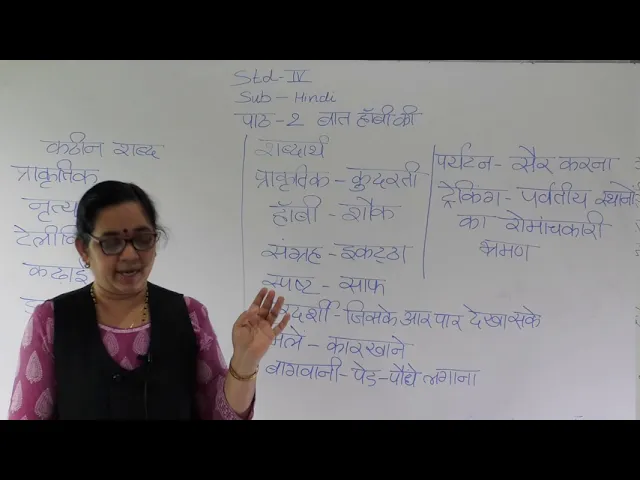 Std-IV
Sub-Hindi
पाठ-2 बात हॉबी की
कठीन शब्द
प्राकृतिक
नृत्य
कढ़ाई
शब्दार्थ
प्राकृतिक - कुदरती
हॉबी - शौक
संग्रह - इकटठा
स्पष्ट - साफ
जिसके आर पार देखा सके
कारखाने
बागवानी - पेड़ - पौधे लगाना
पर्यटन - सैर करना
ट्रेकिंग - पर्वतीय स्थानों
का रोमांचकारी
भ्रमण